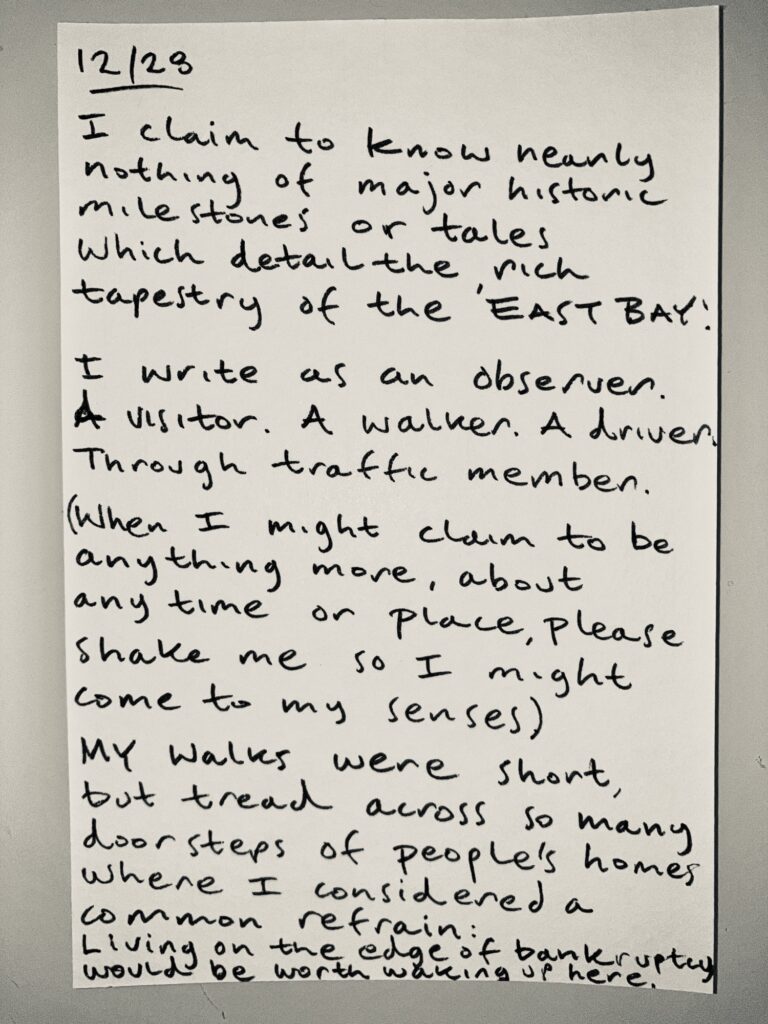 12/28
I claim to know nearly
nothing of major historic
milestones or tales
which detail the rich
tapestry of the 'EAST BAY'.
I write as an observer.
A visitor. A walker. A driver.
Through traffic member.
(When I might claim to be
anything more, about
any time or place, please
shake me so I might
come to my senses)
My walks were short,
but tread across so many
doorsteps of people's homes
where I considered a
common refrain:
Living on the edge of bankruptcy
would be worth waking up here.